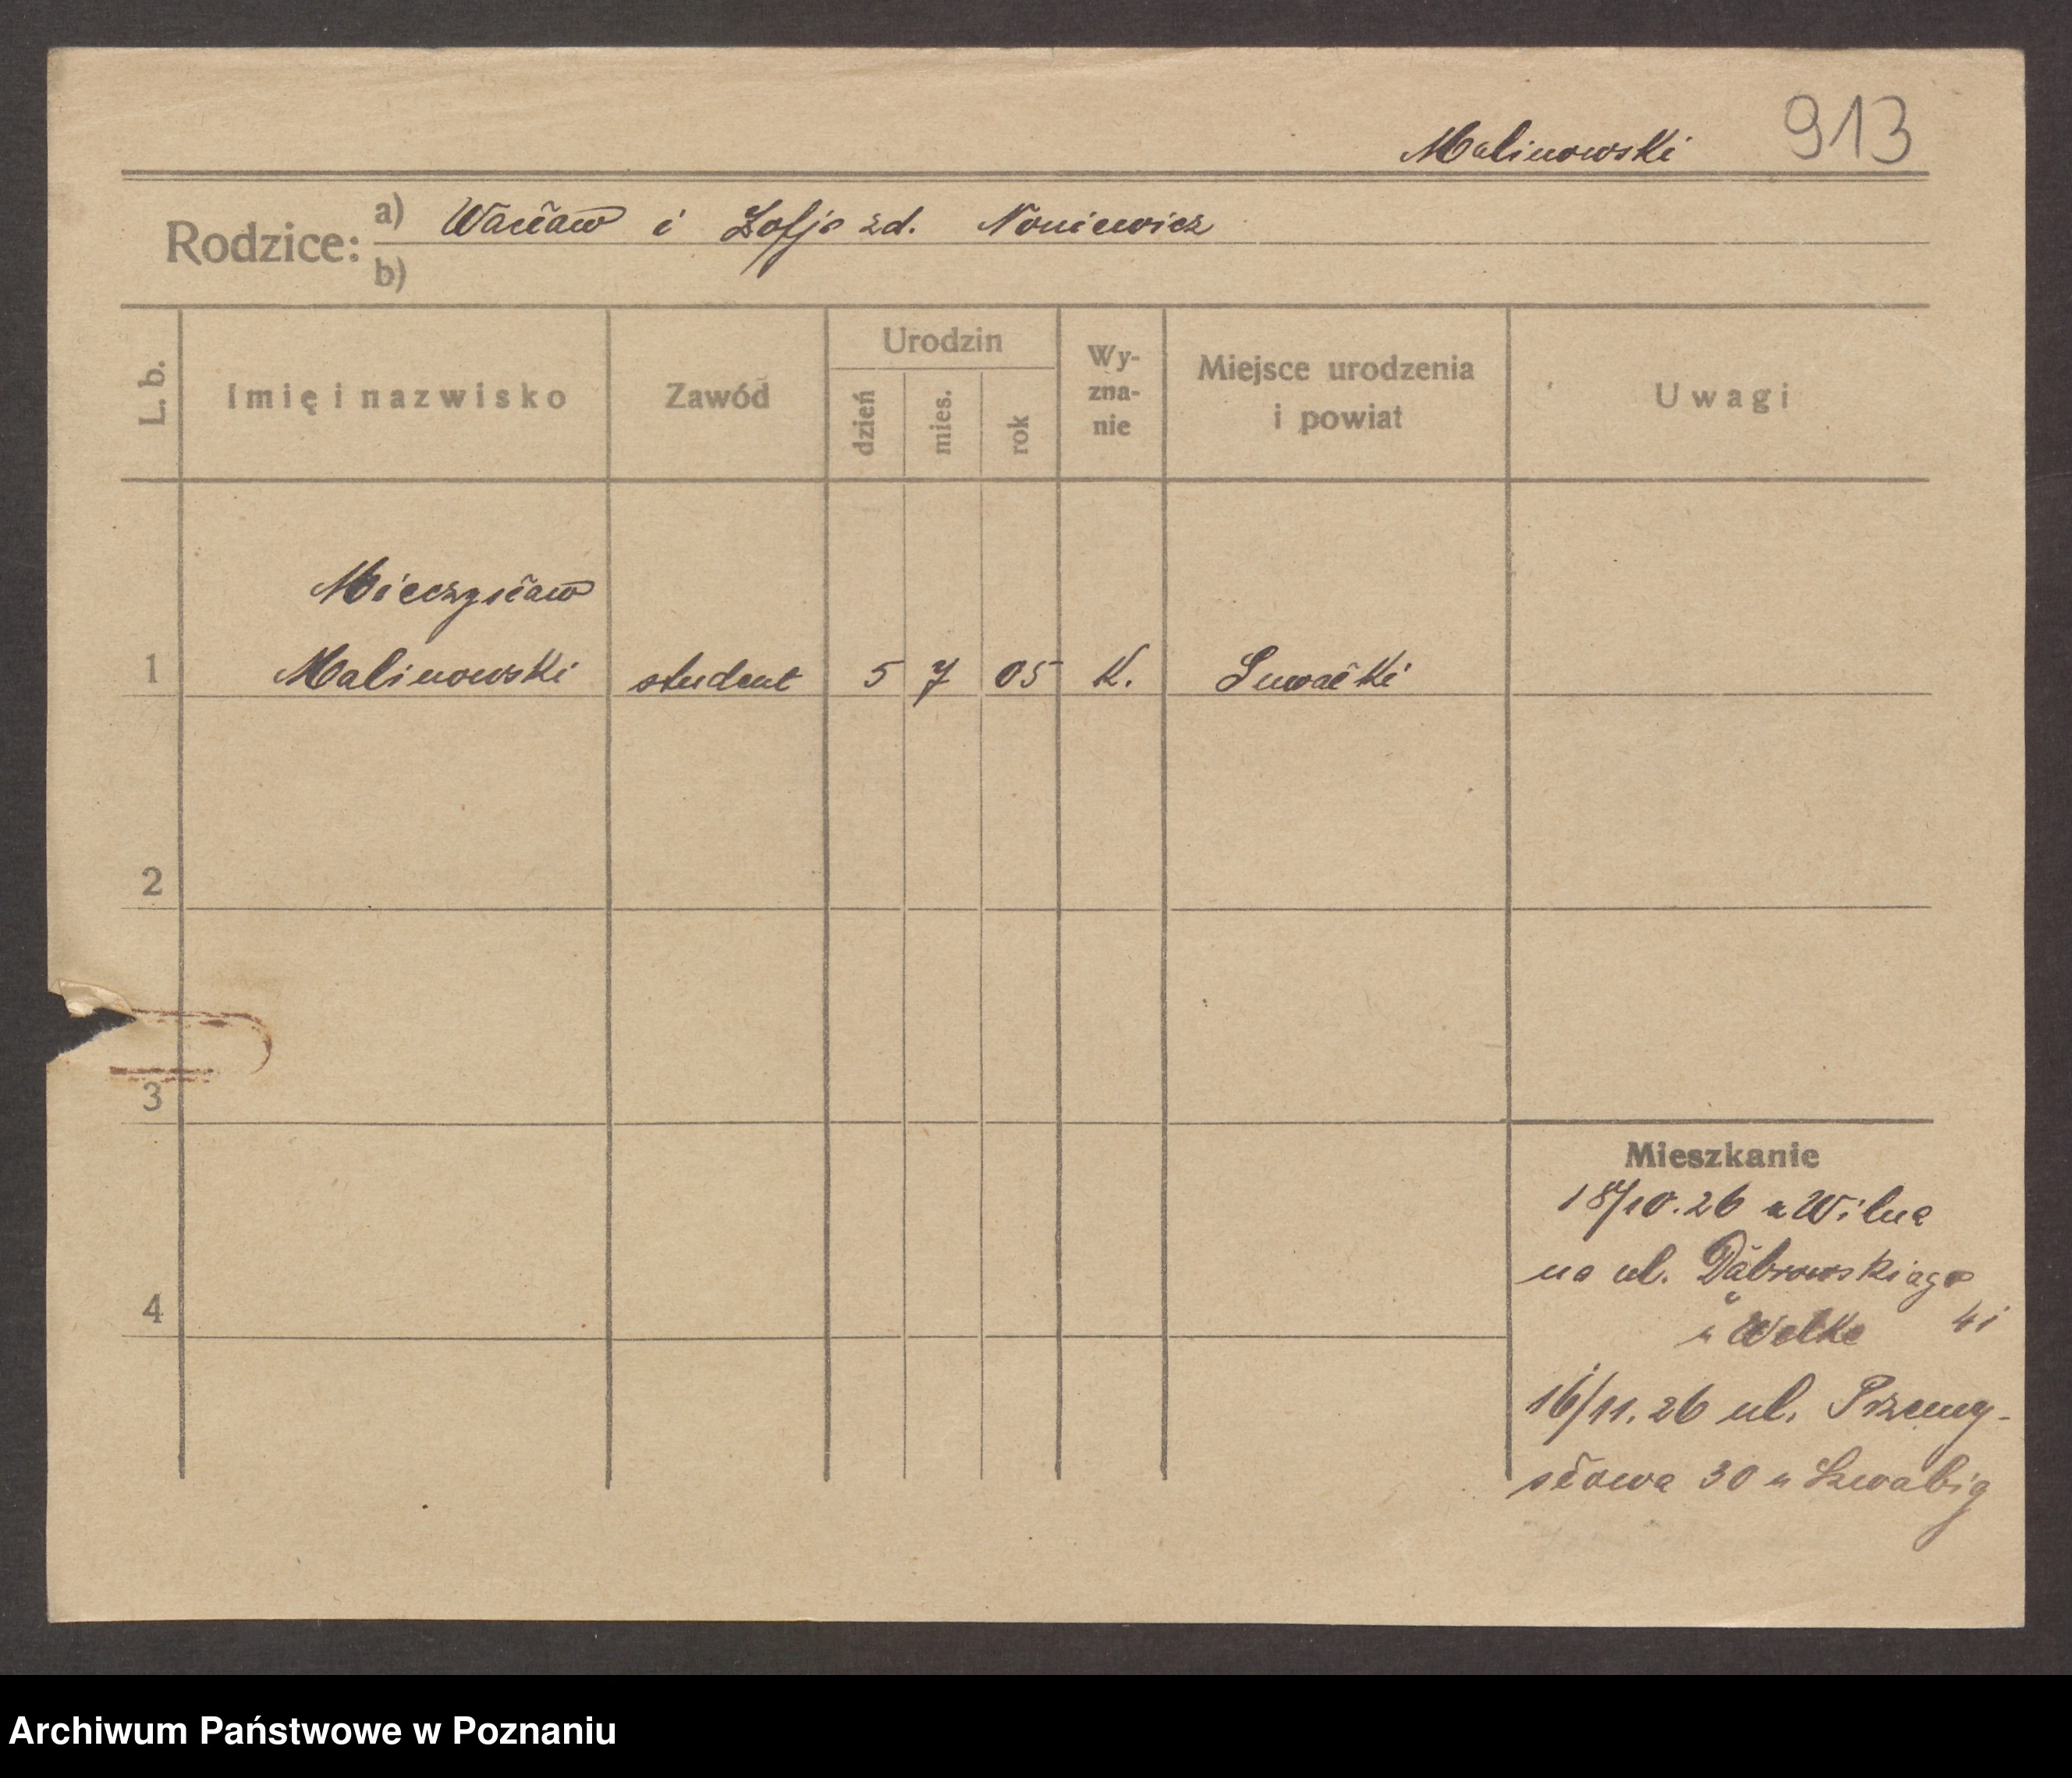 Malinowski 913
Rodzice: a) Wacław i Zofja zd. Noniewicz
b)
L. b. Imię i nazwisko Zawód Urodzin dzień mies. rok Wy-zna-nie Miejsce urodzenia i powiat Uwagi
Mieczysław
1 Malinowski student 5 7 05 K. Suwałki
2
3
Mieszkanie
18/10.26 z Wilna
na ul. Dąbrowskiego
4
u Welke 41
16/11.26 ul. Przemy-
słowa 30 u
Archiwum Państwowe w Poznaniu